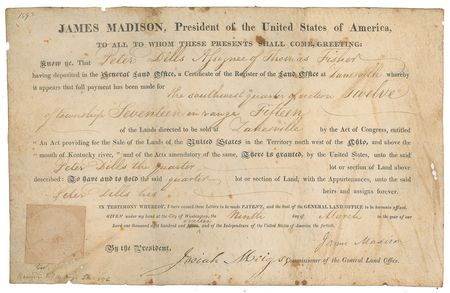 JAMES MADISON, President of the United States of America,
TO ALL TO WHOM THESE PRESENTS SHALL COME, GREETING:
Know ye, That Peter Dills Assignee of Thomas Fisher
having deposited in the General Land Office, a Certificate of the Register of the Land Office at Zanesville whereby
it appears that full payment has been made for the southwest quarter of section Twelve
of township Seventeen in range Fifteen
of the Lands directed to be sold at Zanesville by the Act of Congress, entitled
"An Act providing for the Sale of the Lands of the United States in the Territory north west of the Ohio, and above the
mouth of Kentucky river," and of the Acts amendatory of the same, There is granted, by the United States, unto the said
Peter Dills the quarter lot or section of land above
described: To have and to hold the said quarter lot or section of land, with the Appurtenances, unto the said
Peter Dills his heirs and assigns forever.
IN TESTIMONY WHEREOF, I have caused these Letters to be made PATENT, and the Seal of the GENERAL LAND OFFICE to be hereunto affixed.
GIVEN under my hand at the City of Washington, the Ninth day of March in the year of our
Lord one thousand eight hundred and and of the Independence of the United States of America the fortieth.
James Madison
By the President,
Josiah Meigs Commissioner of the General Land Office.